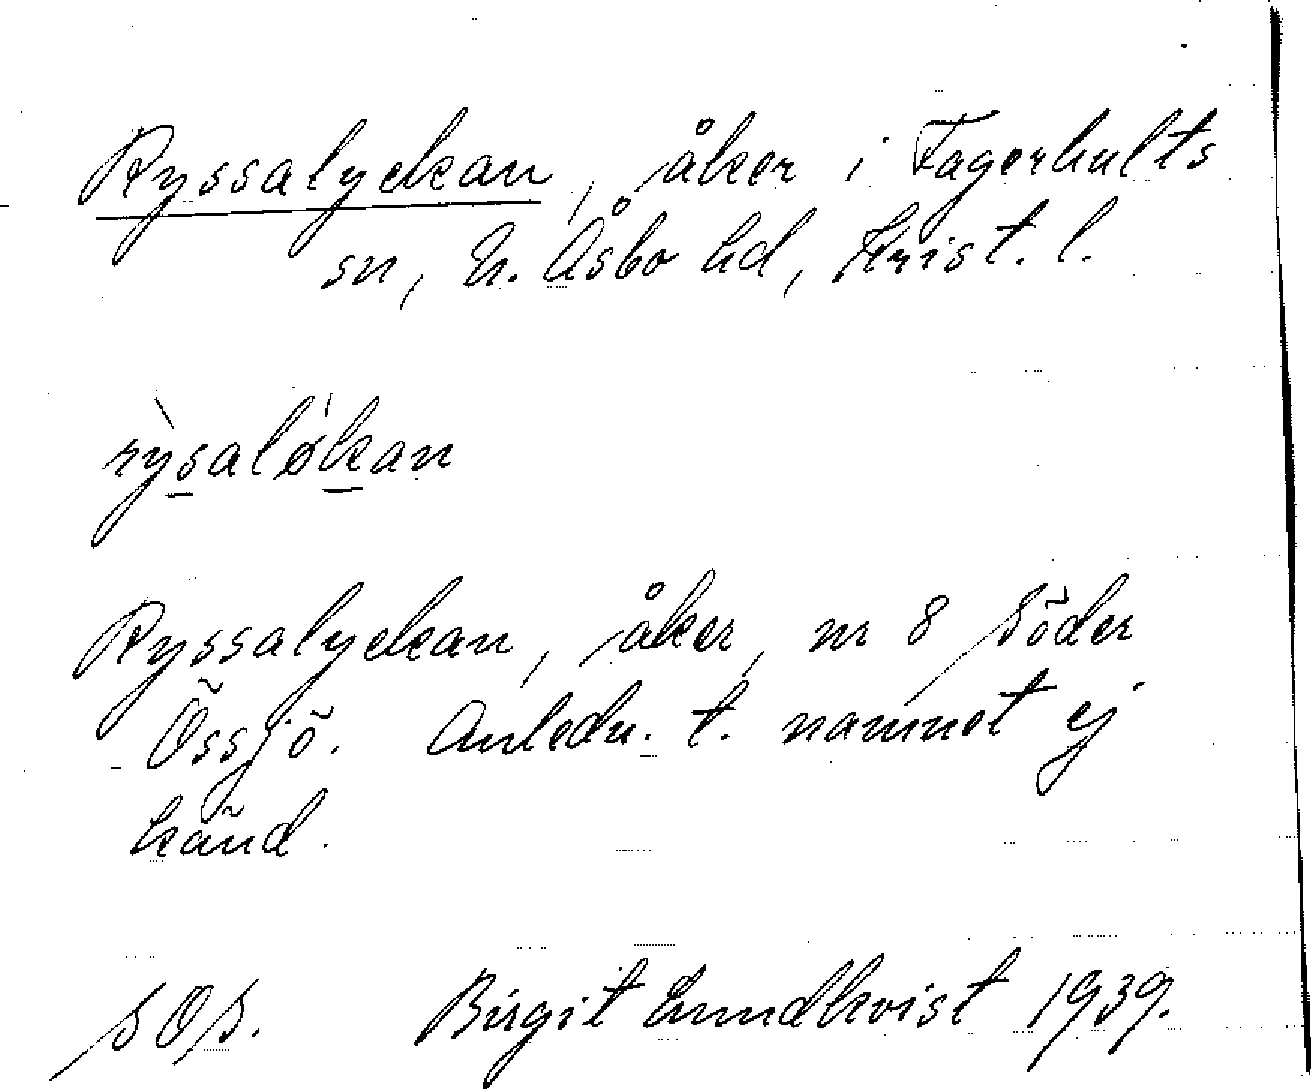 Ryssalyckan, åker i Fagerhults
sn, N. Åsbo hd, Krist. l.
rỳsaløkan
Ryssalyckan, åker, nr 8 Söder
Össjö. Anledn. t. namnet ej
känd.
SOS. Birgit Lundkvist 1939.